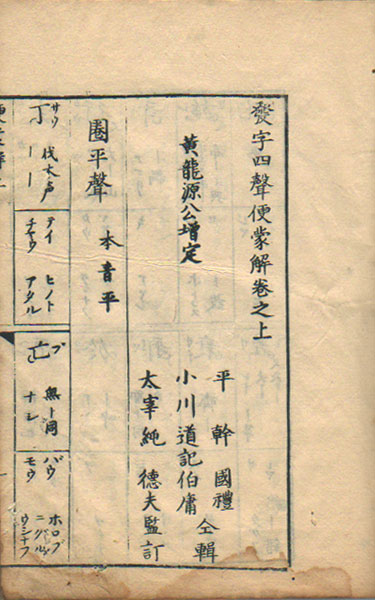 發字四聲便蒙解卷之上
黃龍源公增定
平 幹 國禮
小川道記伯庸 仝輯
太宰純 德夫監訂
圈平聲 本音平
丁 サウ 伐木声 丨丨
テイ チヤウ ヒノト アタル
亡 ブ 無ト同 ナシ
バウ モウ ホロブ ニグル ウシナフ